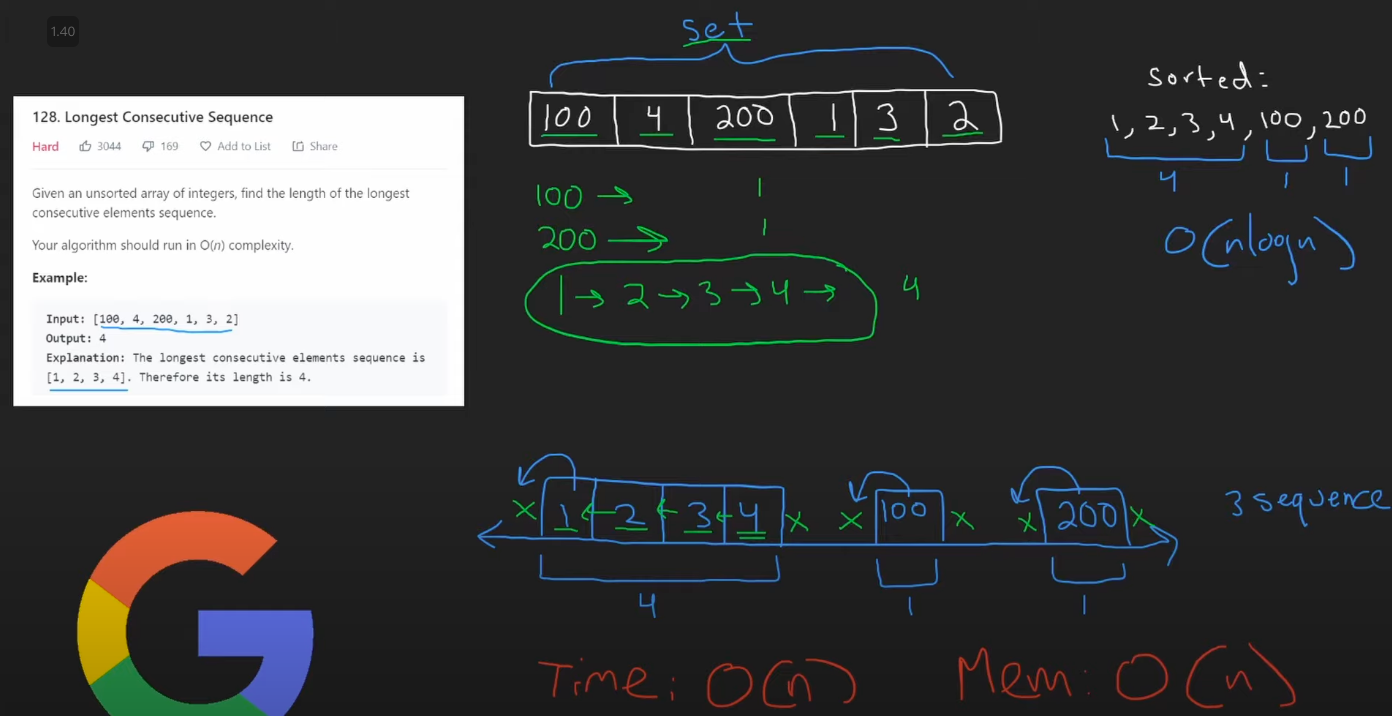 1.40
128. Longest Consecutive Sequence
Hard 3044 169 Add to List Share
Given an unsorted array of integers, find the length of the longest
consecutive elements sequence.
Your algorithm should run in O(n) complexity.
Example:
Input: [100, 4, 200, 1, 3, 2]
Output: 4
Explanation: The longest consecutive elements sequence is
[1, 2, 3, 4]. Therefore its length is 4.
set
100 4 200 1 3 2
100 → 1
200 → 1
1 → 2 → 3 → 4 → 4
Sorted:
1, 2, 3, 4, 100, 200
4 1 1
O(nlogn)
x 1 ← 2 ← 3 ← 4 x x 100 x x 200 x
4 1 1
3 sequence
Time: O(n) Mem: O(n)
G